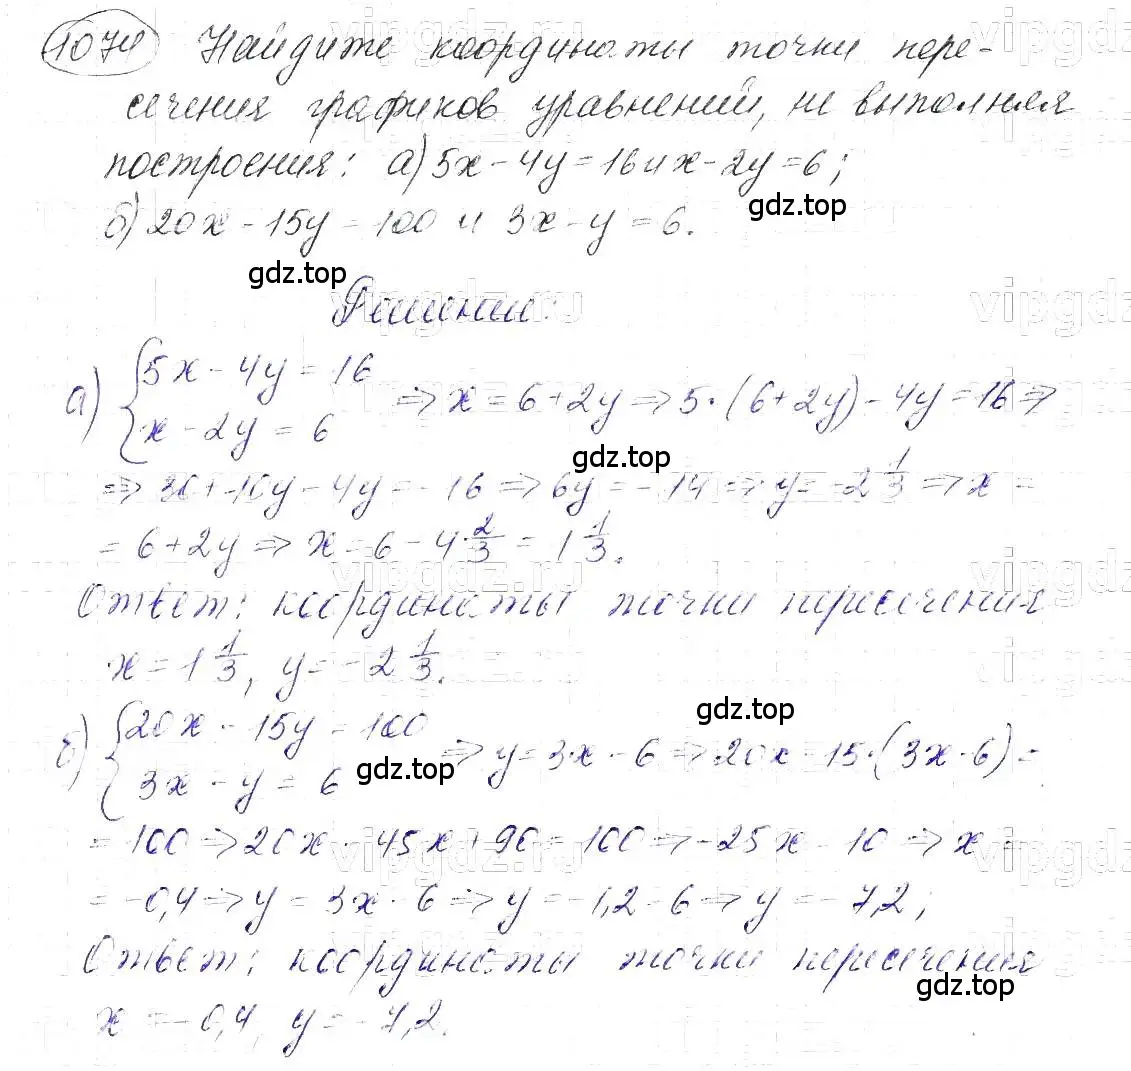 1074 Найдите координаты точки пере-
сечения графиков уравнений, не выполняя
построения: а) 5x - 4y = 16 и x - 2y = 6;
gdz.top
б) 20x - 15y = 100 и 3x - y = 6.
gdz.top
Решение:
а) {5x - 4y = 16
x - 2y = 6 => x = 6 + 2y => 5·(6+2y) - 4y = 16 =>
gdz.top
=> 30 + 10y - 4y = 16 => 6y = -14 => y = -2 1/3 => x =
= 6 + 2y => x = 6 - 4 2/3 = 1 1/3.
Ответ: координаты точки пересечения
x = 1 1/3, y = -2 1/3.
gdz.top
б) {20x - 15y = 100
3x - y = 6 => y = 3x - 6 => 20x - 15·(3x - 6) =
gdz.top
= 100 => 20x - 45x + 90 = 100 => -25x = 10 => x =
= -0,4 => y = 3x - 6 => y = -1,2 - 6 => y = -7,2;
Ответ: координаты точки пересечения
gdz.top
x = -0,4, y = -7,2.